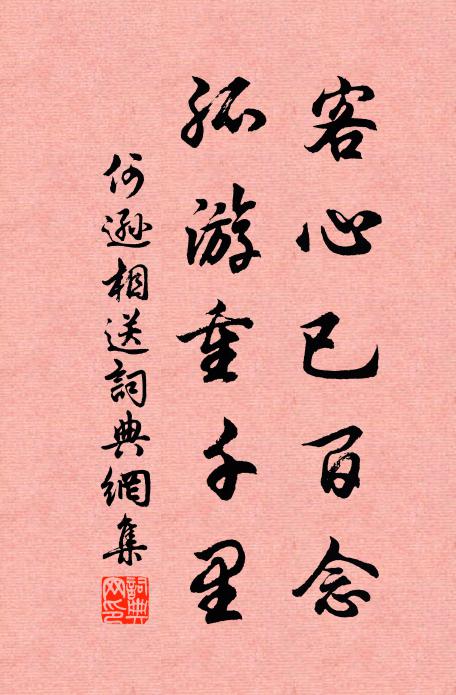 客心已百念
孤游重千里
何遜相送詞典網集
詞典網印